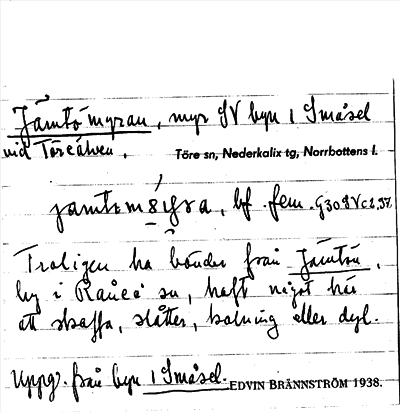 Jämtömyran, myr SV byn i Småsel
vid Töreälven.
Töre sn, Nederkalix tg, Norrbottens l.
bf. fem.
Troligen ha bönder från Jämtön,
by i Råneå sn, haft något här
att skaffa, slåtter, kolning eller dyl.
Uppg. från byn i Småsel.
EDVIN BRÄNNSTRÖM 1938.